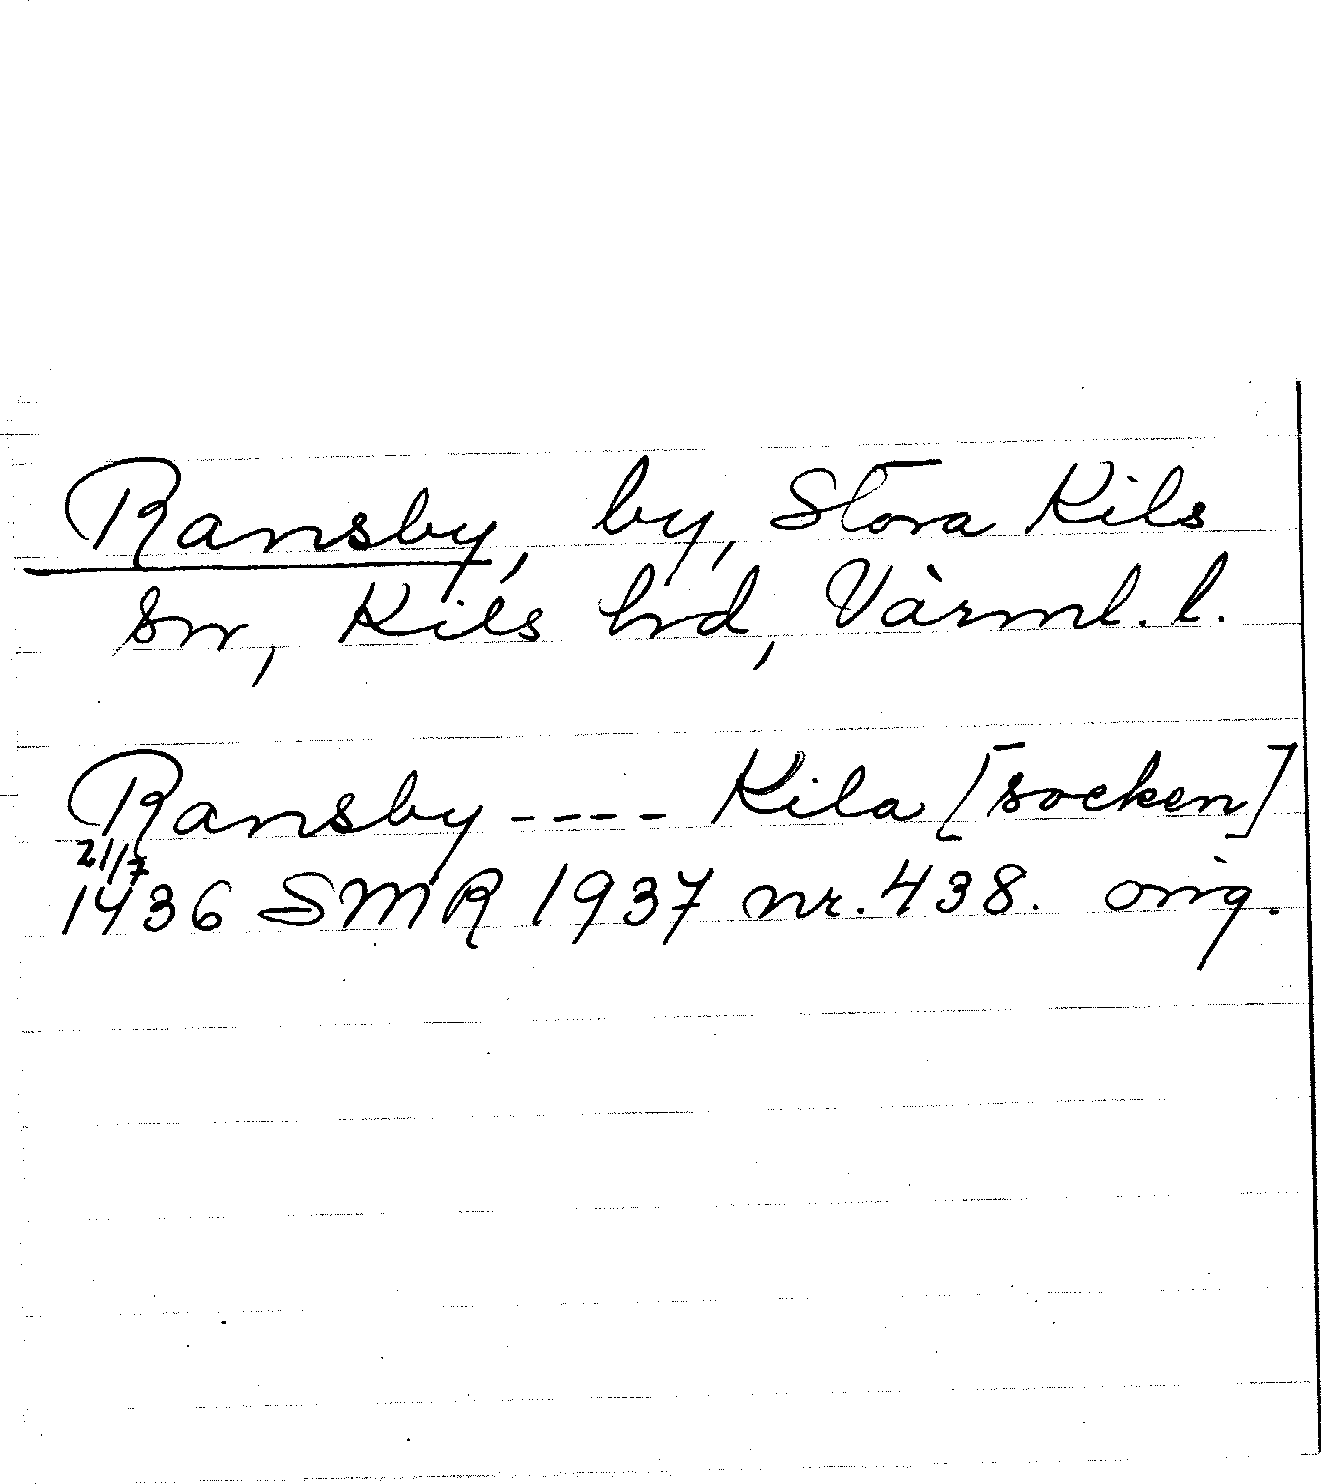 Ransby, by, Stora Kils
sn, Kils hd, Värml. l.
Ransby ---- Kila [socken]
21/7
1436 SMR 1937 nr. 438. orig.